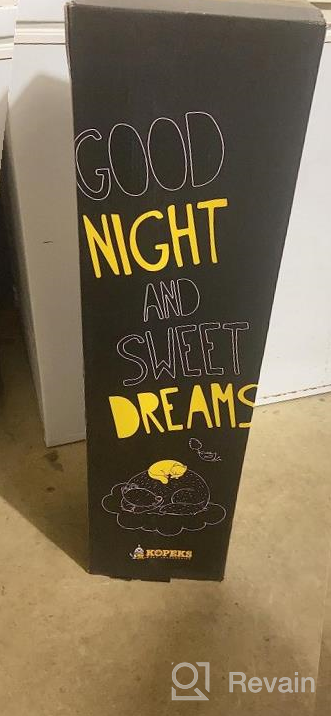 GOOD
NIGHT
AND
SWEET
DREAMS
KOPEKS
Revain